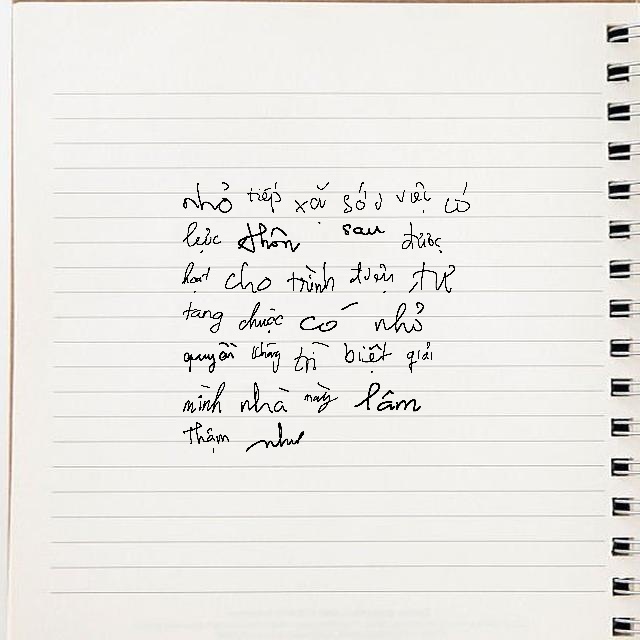 nhỏ tiếp xã số việc có
lực thôn sau được
hoạt cho trình được tư
tang chuộc có nhỏ
quyền không trì biệt giải
mình nhà này lâm
thậm như